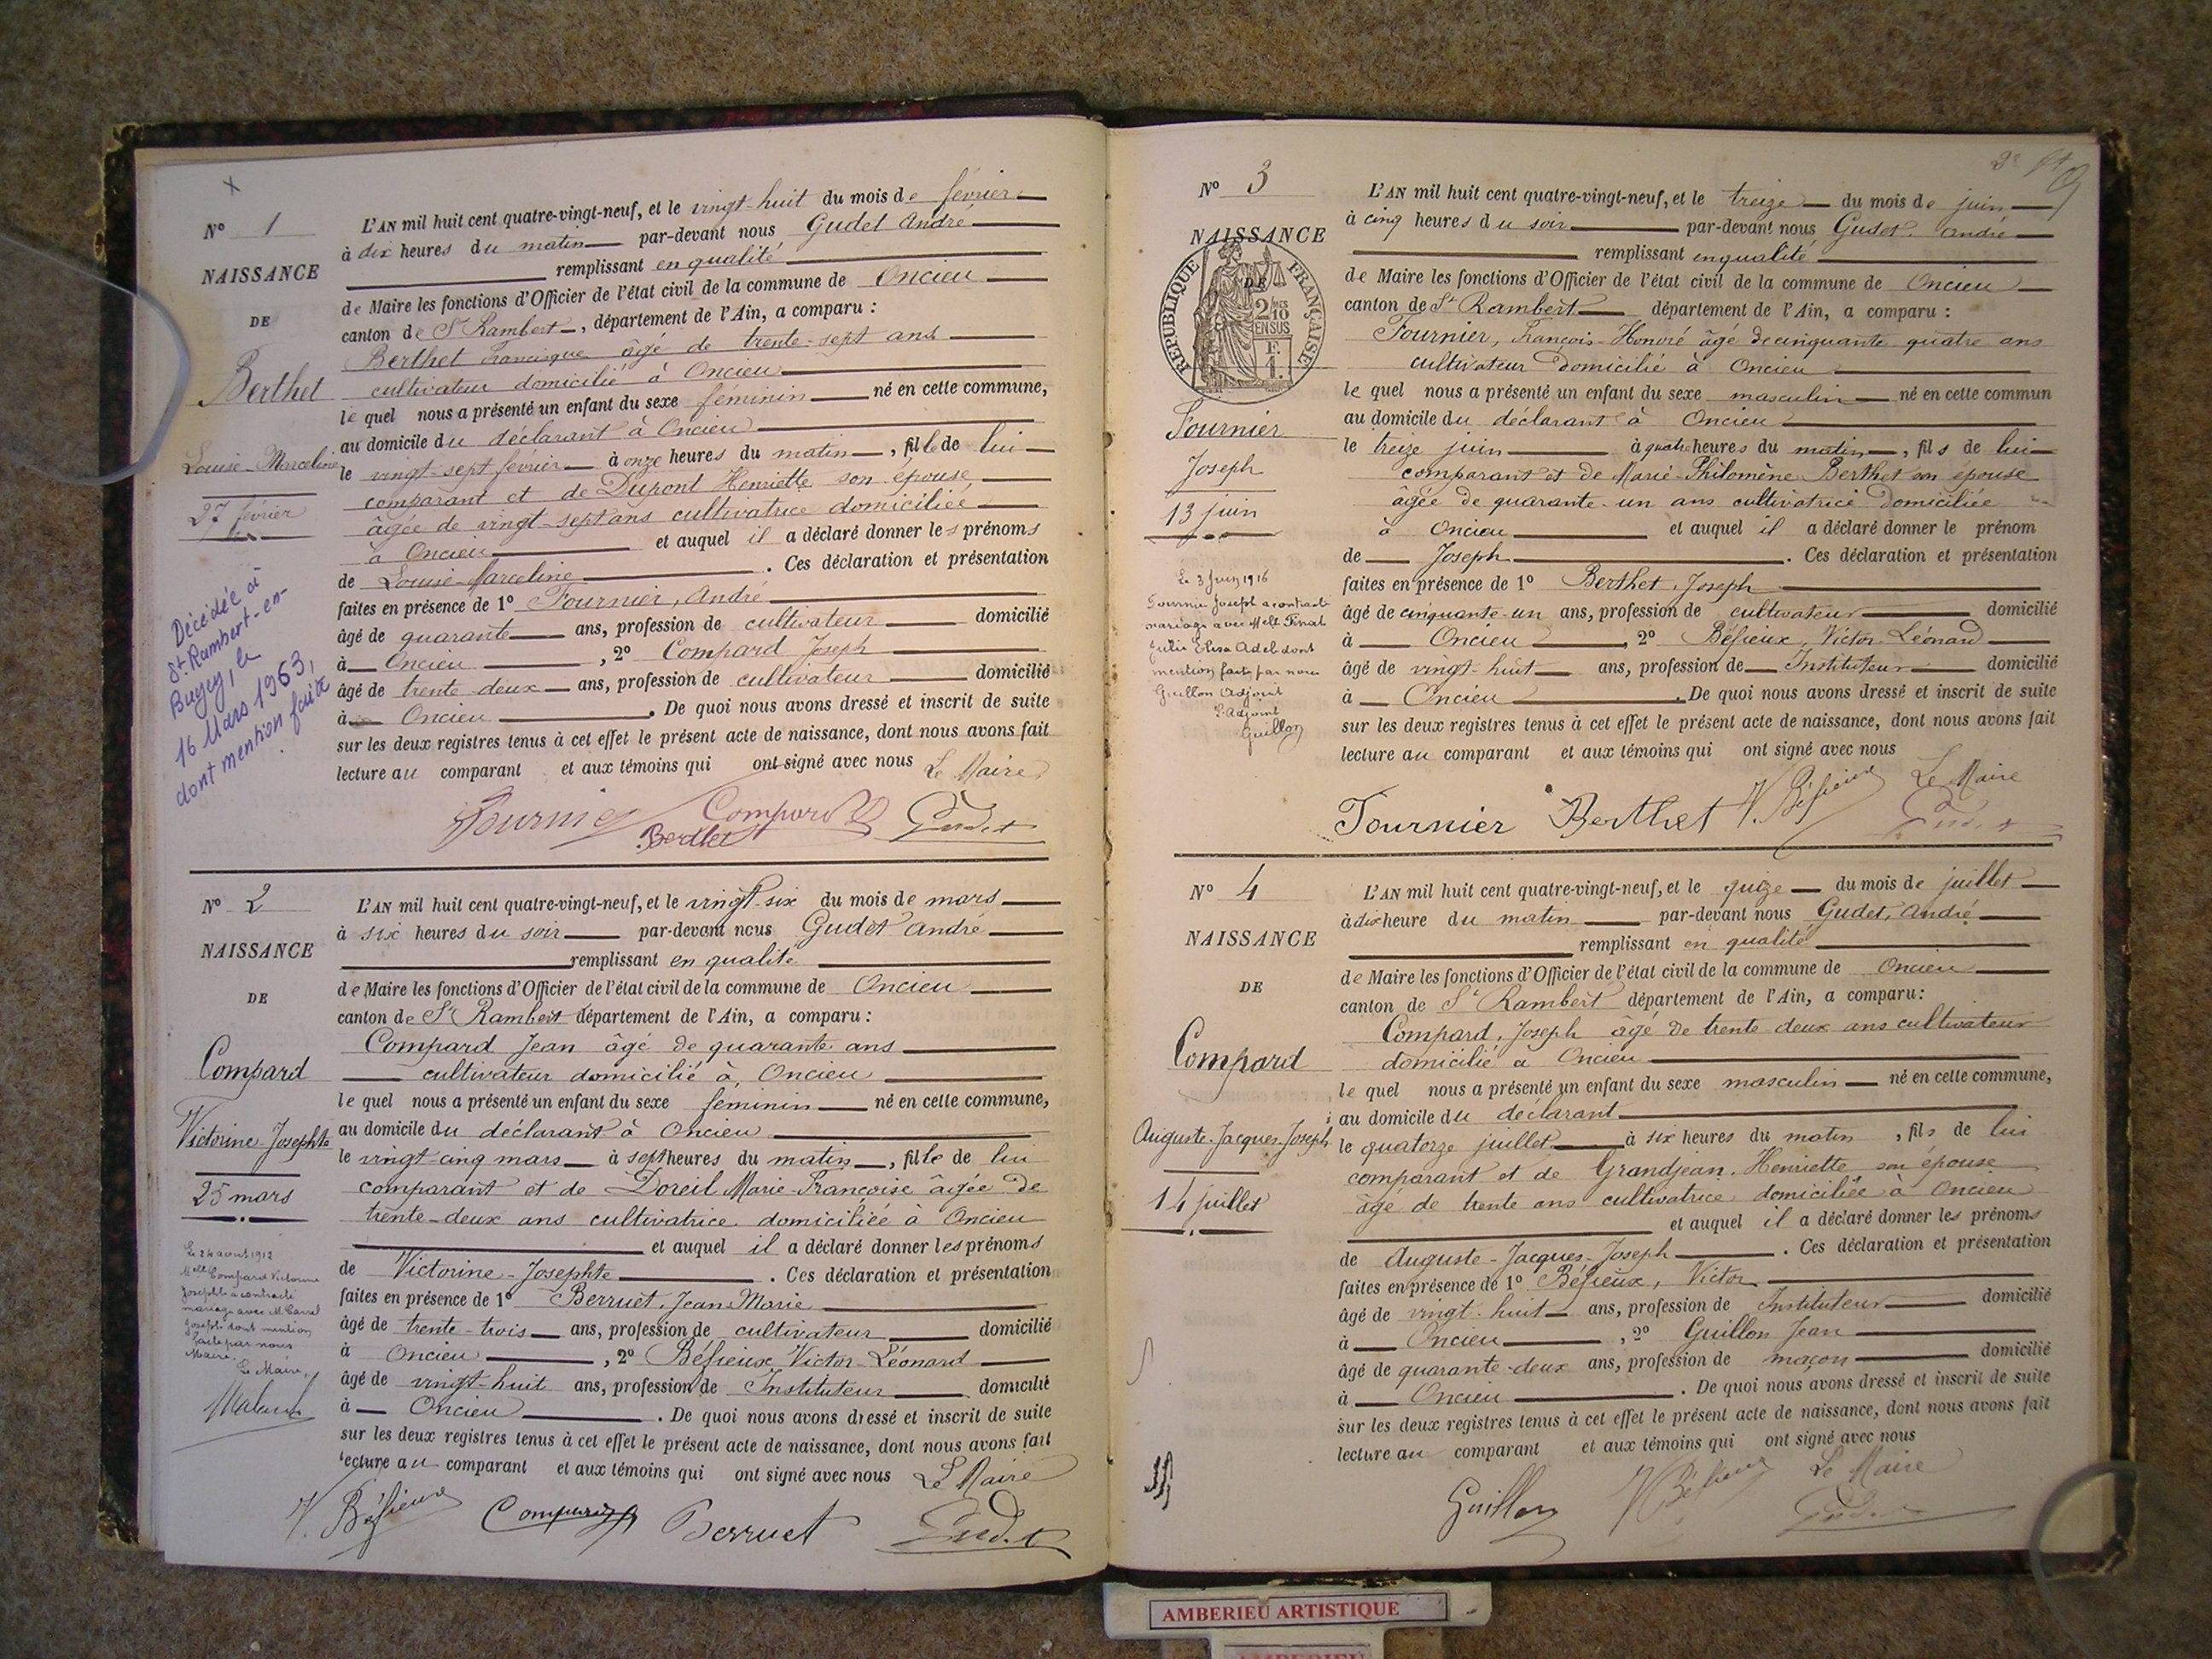 N° 1
NAISSANCE
DE
Berthet
Louise-Marceline
27 février
Décédée à
St Rambert-en-
Bugey, le
16 Mars 1963,
dont mention faite
L'AN mil huit cent quatre-vingt-neuf, et le vingt-huit du mois de février
à dix heures du matin par-devant nous Gudet André
remplissant en qualité
de Maire les fonctions d'Officier de l'état civil de la commune de Oncieu
canton de St Rambert, département de l'Ain, a comparu :
Berthet Francisque âgé de trente-sept ans
cultivateur domicilié à Oncieu
le quel nous a présenté un enfant du sexe féminin né en cette commune,
au domicile du déclarant à Oncieu
le vingt-sept février à onze heures du matin, fille de lui
comparant et de Dupont Henriette son épouse,
âgée de vingt-sept ans cultivatrice domiciliée
à Oncieu et auquel il a déclaré donner les prénoms
de Louise-Marceline. Ces déclaration et présentation
faites en présence de 1° Fournier, André
âgé de quarante ans, profession de cultivateur domicilié
à Oncieu, 2° Compard Joseph
âgé de trente-deux ans, profession de cultivateur domicilié
à Oncieu. De quoi nous avons dressé et inscrit de suite
sur les deux registres tenus à cet effet le présent acte de naissance, dont nous avons fait
lecture au comparant et aux témoins qui ont signé avec nous Le Maire
Fournier Compard Gudet
Berthet
N° 2
NAISSANCE
DE
Compard
Victorine-Josephte
25 mars
Le 24 aout 1912
Melle Compard Victorine
Josephte a contracté
mariage avec M. Carrel
Joseph dont mention
faite par nous
Maire.
Le Maire,
L'AN mil huit cent quatre-vingt-neuf, et le vingt-six du mois de mars
à six heures du soir par-devant nous Gudet André
remplissant en qualité
de Maire les fonctions d'Officier de l'état civil de la commune de Oncieu
canton de St Rambert département de l'Ain, a comparu :
Compard Jean âgé de quarante ans
cultivateur domicilié à Oncieu
le quel nous a présenté un enfant du sexe féminin né en cette commune,
au domicile du déclarant à Oncieu
le vingt-cinq mars à sept heures du matin, fille de lui
comparant et de Doreil Marie-Françoise âgée de
trente-deux ans cultivatrice domiciliée à Oncieu
et auquel il a déclaré donner les prénoms
de Victorine-Josephte. Ces déclaration et présentation
faites en présence de 1° Berruet, Jean-Marie
âgé de trente-trois ans, profession de cultivateur domicilié
à Oncieu, 2° Béfieux Victor-Léonard
âgé de vingt-huit ans, profession de Instituteur domicilié
à Oncieu. De quoi nous avons dressé et inscrit de suite
sur les deux registres tenus à cet effet le présent acte de naissance, dont nous avons fait
lecture au comparant et aux témoins qui ont signé avec nous Le Maire
V. Béfieux Compard Berruet Gudet
N° 3
NAISSANCE
DE
REPUBLIQUE FRANÇAISE
2/10 EN SUS
F. 1.
Fournier
Joseph
13 juin
Le 3 Juin 1916
Fournier Joseph a contracté
mariage avec Melle Pinat
Julie Elisa Adel dont
mention faite par nous
Guillon Adjoint
L'adjoint
Guillon
L'AN mil huit cent quatre-vingt-neuf, et le treize du mois de juin
à cinq heures du soir par-devant nous Gudet, André
remplissant en qualité
de Maire les fonctions d'Officier de l'état civil de la commune de Oncieu
canton de St Rambert département de l'Ain, a comparu :
Fournier, François-Honoré âgé de cinquante quatre ans
cultivateur domicilié à Oncieu
le quel nous a présenté un enfant du sexe masculin né en cette commun
au domicile du déclarant à Oncieu
le treize juin à quatre heures du matin, fils de lui
comparant et de Marie-Philomène Berthet son épouse
âgée de quarante-un ans cultivatrice domiciliée
à Oncieu et auquel il a déclaré donner le prénom
de Joseph. Ces déclaration et présentation
faites en présence de 1° Berthet, Joseph
âgé de cinquante-un ans, profession de cultivateur domicilié
à Oncieu, 2° Béfieux, Victor-Léonard
âgé de vingt-huit ans, profession de Instituteur domicilié
à Oncieu. De quoi nous avons dressé et inscrit de suite
sur les deux registres tenus à cet effet le présent acte de naissance, dont nous avons fait
lecture au comparant et aux témoins qui ont signé avec nous
Le Maire
Fournier Berthet V. Béfieux Gudet
N° 4
NAISSANCE
DE
Compard
Auguste-Jacques-Joseph
14 juillet
L'AN mil huit cent quatre-vingt-neuf, et le quize du mois de juillet
à dix heure du matin par-devant nous Gudet, André
remplissant en qualité
de Maire les fonctions d'Officier de l'état civil de la commune de Oncieu
canton de St Rambert département de l'Ain, a comparu:
Compard, Joseph âgé de trente-deux ans cultivateur
domicilié à Oncieu
le quel nous a présenté un enfant du sexe masculin né en cette commune,
au domicile du déclarant
le quatorze juillet à six heures du matin, fils de lui
comparant et de Grandjean, Henriette son épouse
âgé de trente ans cultivatrice domiciliée à Oncieu
et auquel il a déclaré donner les prénoms
de Auguste-Jacques-Joseph. Ces déclaration et présentation
faites en présence de 1° Béfieux, Victor
âgé de vingt-huit ans, profession de Instituteur domicilié
à Oncieu, 2° Guillon Jean
âgé de quarante-deux ans, profession de maçon domicilié
à Oncieu. De quoi nous avons dressé et inscrit de suite
sur les deux registres tenus à cet effet le présent acte de naissance, dont nous avons fait
lecture au comparant et aux témoins qui ont signé avec nous
Le Maire
Guillon V. Béfieux Gudet
AMBERIEU ARTISTIQUE
AMBERIEU